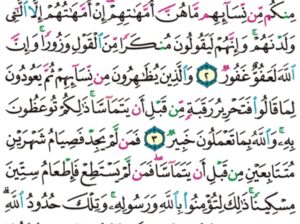 مِنكُم مِّن نِّسَآئِهِم مَّا هُنَّ أُمَّهَٰتِهِمْ إِنْ أُمَّهَٰتُهُمْ إِلَّا ٱلَّٰٓـِٔى
وَلَدْنَهُمْ وَإِنَّهُمْ لَيَقُولُونَ مُنكَرًا مِّنَ ٱلْقَوْلِ وَزُورًا وَإِنَّ
ٱللَّهَ لَعَفُوٌّ غَفُورٌ ٢ وَٱلَّذِينَ يُظَٰهِرُونَ مِن نِّسَآئِهِمْ ثُمَّ يَعُودُونَ
لِمَا قَالُوا۟ فَتَحْرِيرُ رَقَبَةٍ مِّن قَبْلِ أَن يَتَمَآسَّا ذَٰلِكُمْ تُوعَظُونَ
بِهِۦ وَٱللَّهُ بِمَا تَعْمَلُونَ خَبِيرٌ ٣ فَمَن لَّمْ يَجِدْ فَصِيَامُ شَهْرَيْنِ
مُتَتَابِعَيْنِ مِن قَبْلِ أَن يَتَمَآسَّا فَمَن لَّمْ يَسْتَطِعْ فَإِطْعَامُ سِتِّينَ
مِسْكِينًا ذَٰلِكَ لِتُؤْمِنُوا۟ بِٱللَّهِ وَرَسُولِهِۦ وَتِلْكَ حُدُودُ ٱللَّهِ